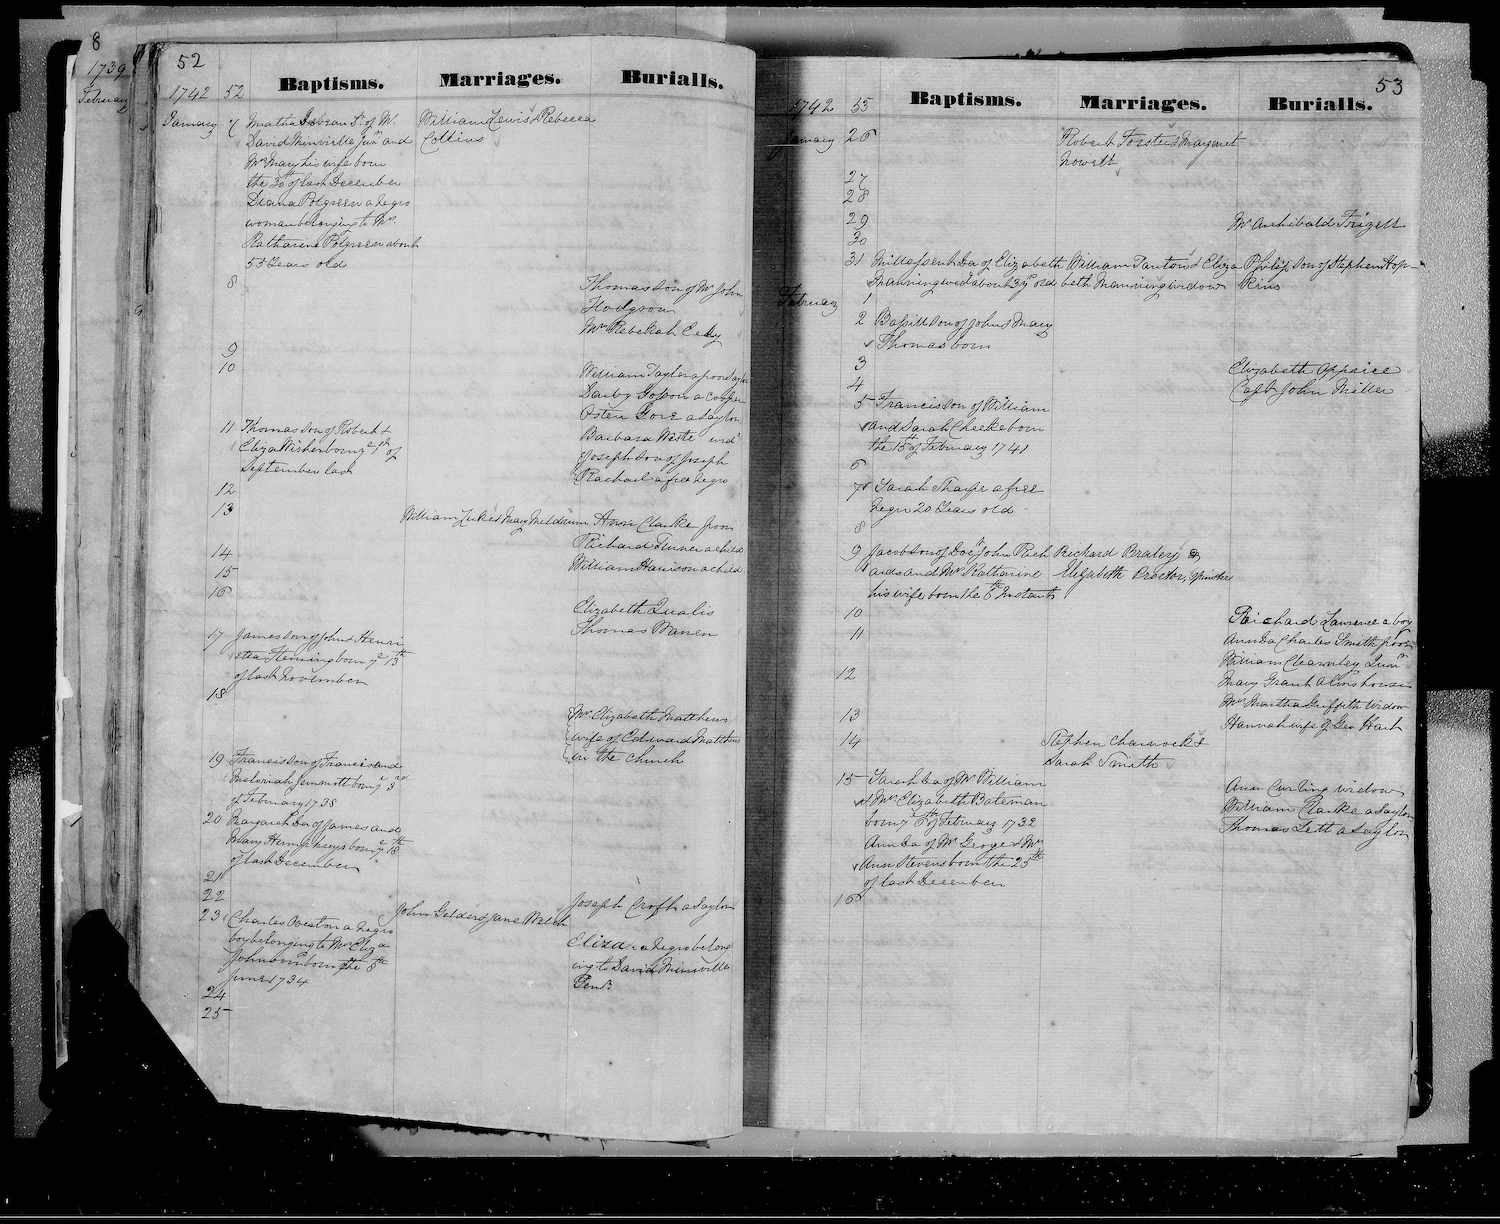 8
1739
February
52
Baptisms. Marriages. Burialls.
1742 52
January 7
David Minvielle Junr and
Mrs Mary his wife born
the 30th of last December
Diana Polgreen a Negro
woman belonging to Mrs
Katharine Polgreen about
55 Years old
William Lewis & Rebecca
Collins
8
Thomas son of Mr John
Hodgson
Mrs Rebekah Eely
9
10
William Taylor a poor
Darby
a Saylor
11 Thomas son of Robert &
Eliza born ye 7th of
September last
Barbara Weste wid
Joseph son of Joseph
Rachael a free Negro
12
13
William & Mary Meldrum
Ann Clarke poor
Richard Turner a child
14
William Harrison a child
15
16
Elizabeth Qualis
Thomas Warren
17 James son of John & Henri
etta Fleming born ye 13th
of last November
18
Mrs Elizabeth Matthews
wife of Edward Matthews
in the Church
19 Francis son of Francis and
born ye 3rd
of February 1738
20 Margaret Da of James and
Mary Humphreys born ye 18th
of last December
21
22
Joseph Croft a Saylor
23 Charles Weston a Negro
boy belonging to Mrs Eliza
Johnson born the 8th
June 1734
John Gelder & Jane Welch
Eliza a Negro belong
ing to David Minvielle
Gent.
24
25
53
Baptisms. Marriages. Burialls.
1742 53
January 26
Robert Forster & Margaret
Nowell
27
28
29
Mr Archibald
30
31 Millessent Da of Elizabeth
Manning wid about 3 yrs old
William Tanton & Eliza
beth Manning widow
Philip son of Stephen Hop-
kins
February 1
2 Bassill son of John & Mary
Thomas born
3
Elizabeth Appice
4
Capt John Miller
5 Francis son of William
and Sarah Cheeke born
the 15th of February 1741
6
7 Sarah Tharpe a free
Negro 20 Years old
8
9 Jacob son of Docr John Rich
ards and Mrs Katharine
his wife born the 6th Instant
Richard Braley &
Elizabeth Proctor, Spinster
10
Richard Lawrence a boy
11
Ann Da Charles Smith poor
William Junr
12
Mary Grant Almshouse
Mrs Martha Griffith Widow
13
Hannah wife of Geo Hart
14
Stephen Charnock &
Sarah Smith
15 Sarah Da of Mr William
& Mrs Elizabeth Bateman
born ye 6th of February 1732
Ann Da of Mr George & Mrs
Ann Stevens born the 25th
of last December
Ann Curling widow
William Clarke a Saylor
Thomas Lett a Saylor
16